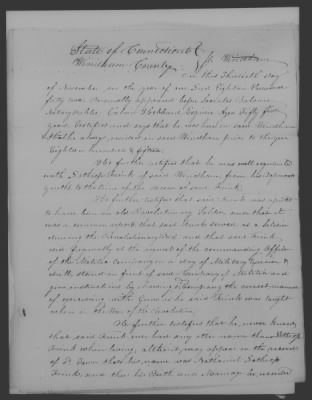 State of Connecticut }
Windham County } ss. Windham
on this Thirtieth day
of November in the year of our Lord Eighteen Hundred
fifty was personally appeared before
Notary Public, Calvin Hebbard Esquire Aged Fifty five
years testifies and says that he was born in said Windham
that he always resided in said Windham prior to the year
Eighteen hundred & fifteen
He further testifies that he was well acquainted
with Lathrop Frink of said Windham from his
youth to the time of the decease of said Frink.
He further testifies that said Frink was reputed
to have been an old Revolutionary Soldier and that it
was a common report that said Frink served as a
during the Revolutionary War and that said Frink
and frequently at the request of the commanding Officer
of the Militia Company on a day of Military
drills stand in front of said Company of Militia and
give instructions by showing & the Company the correct manner
of exercising with Guns as he said Frink was taught
when in the War of the Revolution.
He further testifies that he never knew
that said Frink ever had any other name than Lathrop
Frink when living, altho it may appear in the records
of the Town that his name was Nathaniel Lathrop
Frink, and that his Birth and Marriage is recorded